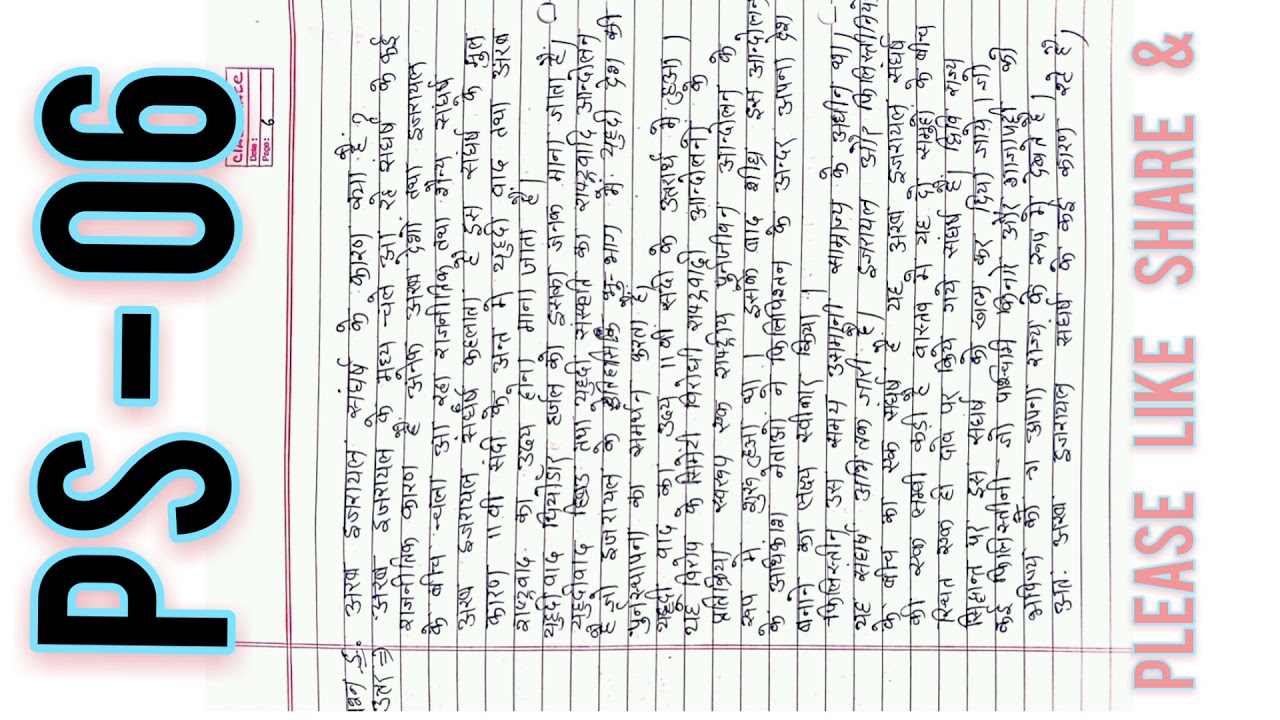 PS-06
CLASSMATE
Date:
Page: 6
प्रश्न 5. अरब इजरायल संघर्ष के कारण क्या है ?
उत्तर ⇒ अरब इजरायल के मध्य चले आ रहे संघर्ष के कई
राजनीतिक कारण है अनेक अरब देशो तथा इजरायल
के बीच चला आ रहा राजनीतिक तथा सैन्य संघर्ष
अरब इजरायल संघर्ष कहलाता है इस संघर्ष के मुल
कारण 11 वी सदी के अन्त मे यहूदी वाद तथा अरब
राष्ट्रवाद का उद्धय होना माना जाता है।
यहूदीवाद थियोडोर हर्जल को इसका जनक माना जाता है।
यहूदीवाद तथा यहूदी संस्कृति का राष्ट्रवादि आन्दोलन
है जो इजरायल के इतिहासिक भु-भाग मे यहूदी देश की
पुनःस्थापना का समर्थन करता है।
यहूदी वाद का उद्धय 11 वी सदी के उत्तरार्ध मे हुआ।
यहू विरोध के विरोधी राष्ट्रवादी आन्दोलनो के
प्रतिक्रिया स्वरूप एक राष्ट्रीय पुर्नजीवन आन्दोलन के
रूप मे शुरू हुआ था। इसके बाद शीघ्र इस आन्दोलन
के अधिकांश नेताओ ने फिलिस्तिन के अन्दर अपना देश
बनाने का लक्ष्य स्वीकार किया।
फिलिस्तीन उस समय उस्मानी साम्राज्य के अधीन था।
यह संघर्ष आज तक जारी है। इजरायल और फिलिस्तीनियो
के बीच का एक संघर्ष है यह अरब इजरायल संघर्ष
की एक लम्बी कड़ी है वास्तव मे यह दो समूहो के बीच
स्थित एक ही क्षेत्र पर किये गये संघर्ष है। द्विवि राज्य
सिद्धान्त पर इस संघर्ष को खत्म कर दिया जाये। जो
कई फिलिस्तीनी जो पश्चिमी किनारे और गाजापट्टी को
भविष्य की मे अपना राज्य के रूप मे देखते है।
अतः अरब इजरायल संघर्ष के कई कारण रहे है।
PLEASE LIKE SHARE &